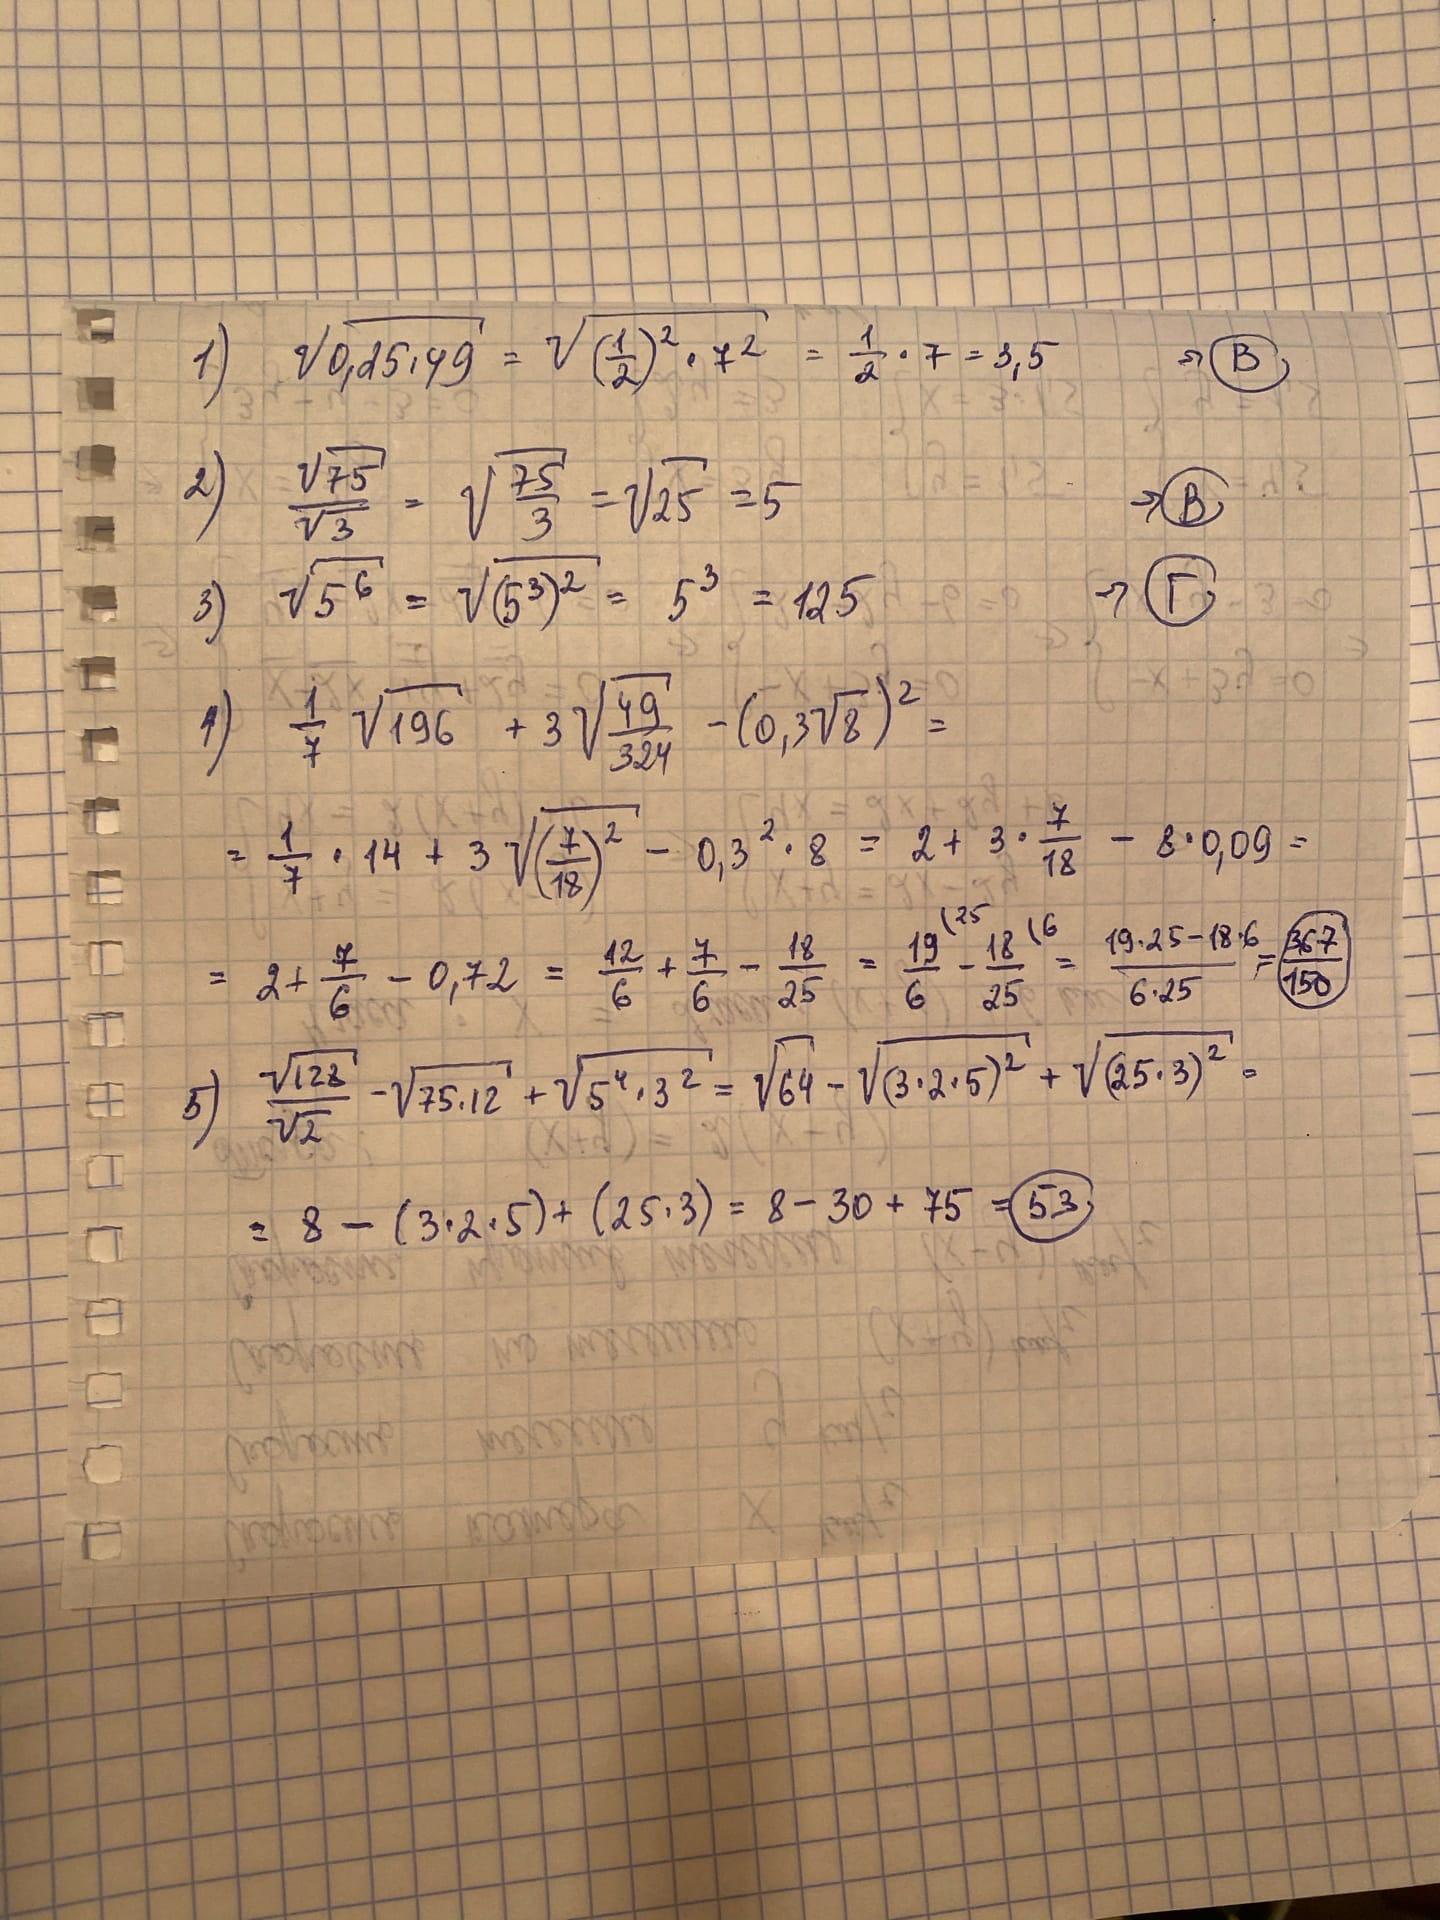 1) √(0,25·49) = √((1/2)²·7²) = 1/2·7 = 3,5 → В
2) √75/√3 = √(75/3) = √25 = 5 → В
3) √(5⁶) = √((5³)²) = 5³ = 125 → Г
4) 1/7 √196 + 3√(49/324) − (0,3√8)² =
= 1/7 · 14 + 3√((7/18)²) − 0,3²·8 = 2 + 3·7/18 − 8·0,09 =
= 2 + 7/6 − 0,72 = 12/6 + 7/6 − 18/25 = 19/6 (25 − 18/25 (6 = (19·25−18·6)/(6·25) = 367/150
5) √128/√2 − √(75·12) + √(5⁴·3²) = √64 − √((3·2·5)²) + √((25·3)²) =
= 8 − (3·2·5) + (25·3) = 8 − 30 + 75 = 53